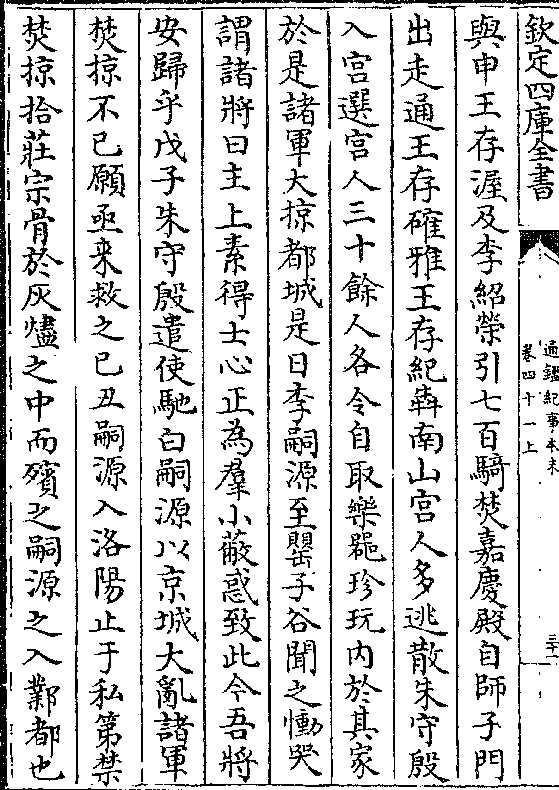 欽定四庫全書
通鑑紀事本末
卷四十一上
三十一
與申王存渥及李紹榮引七百騎焚嘉慶殿自師子門
出走通王存確雅王存紀犇南山宮人多逃散朱守殷
入宮選宮人三十餘人各令自取樂器珍玩內於其家
於是諸軍大掠都城是日李嗣源至罌子谷聞之慟哭
謂諸將曰主上素得士心正為羣小蔽惑致此今吾將
安歸乎戊子朱守殷遣使馳白嗣源以京城大亂諸軍
焚掠不已願亟来救之己丑嗣源入洛陽止于私第禁
焚掠拾莊宗骨於灰燼之中而殯之嗣源之入鄴都也